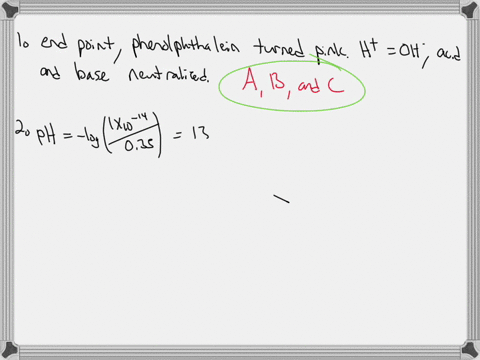 1. end point, phenolphthalein turned pink. H⁺ = OH⁻, acid
and base neutralized.
A, B, and C
2. pH = -log(1×10⁻¹⁴/0.35) = 13